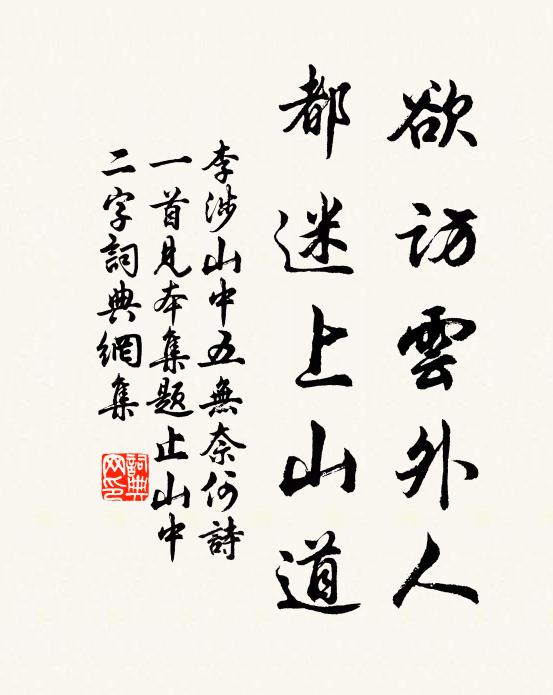 欲訪雲外人
都迷上山道
李涉山中五無奈何詩
一首見本集題止山中
二字詞典網集
詞典
网印